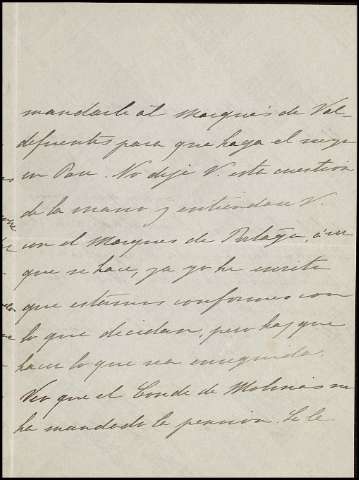 mandarle al Marqués de Val-
defuentes para que haga el suyo
en Pau. No deje V. esta cuestión
de la mano y entiendase V.
con el Marques de a ver
que se hace, ya yo he escrito
que estamos conformes con
lo que decidan, pero hay que
hacer lo que sea enseguida.
Veo que el Conde de Molinas no
ha mandado la pension. Se le